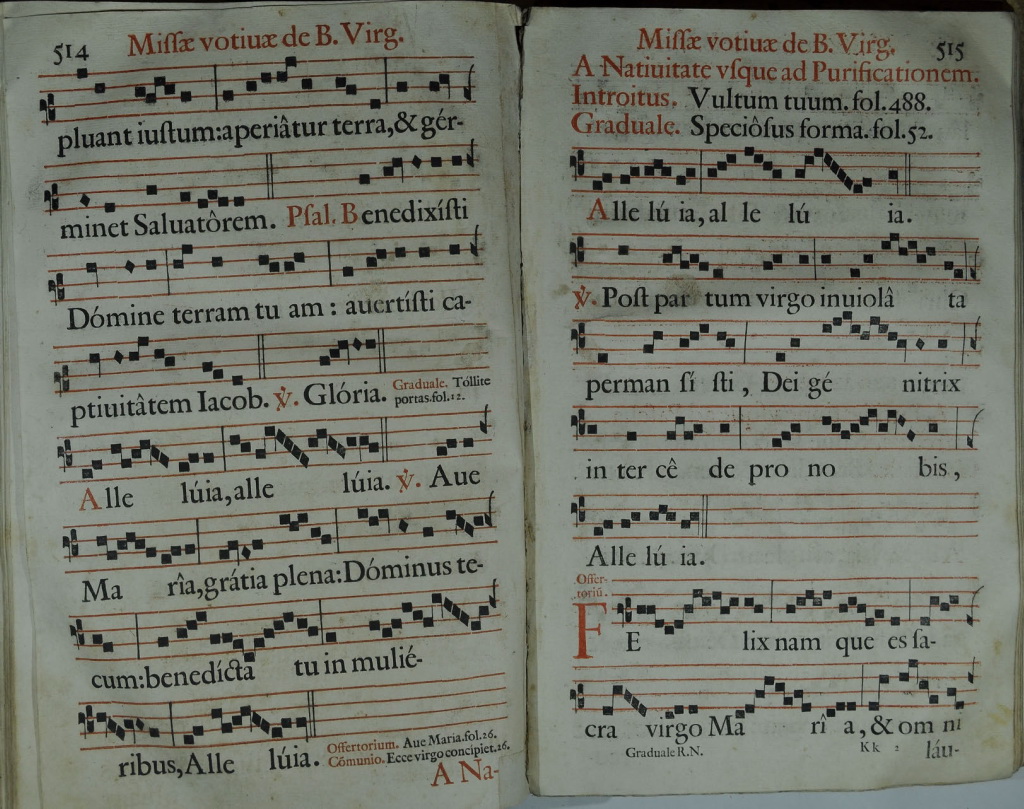 514 Miſſæ votiuæ de B. Virg.
pluant iuſtum:aperiâtur terra,& gér-
minet Saluatôrem. Pſal. Benedixíſti
Dómine terram tu am : auertíſti ca-
ptiuitâtem Iacob. ℣. Glória. Graduale. Tóllite
portas.fol.12.
Alle lúia,alle lúia. ℣. Aue
Ma rîa,grátia plena:Dóminus te-
cum:benedícta tu in mulié-
ribus,Alle lúia. Offertorium. Aue Maria.fol.26.
Cõmunio. Ecce virgo concipiet.26.
A Na-
Miſſæ votiuæ de B. Virg. 515
A Natiuitate vſque ad Purificationem.
Introitus. Vultum tuum.fol.488.
Graduale. Speciôſus forma.fol.52.
Alle lú ia,al le lú ia.
℣. Poſt par tum virgo inuiolâ ta
perman ſí ſti, Dei gé nitrix
in ter cê de pro no bis,
Alle lú ia.
Offer-
toriũ.
FE lix nam que es ſa-
cra virgo Ma rî a,& om ni
Graduale R.N. Kk 2 láu-